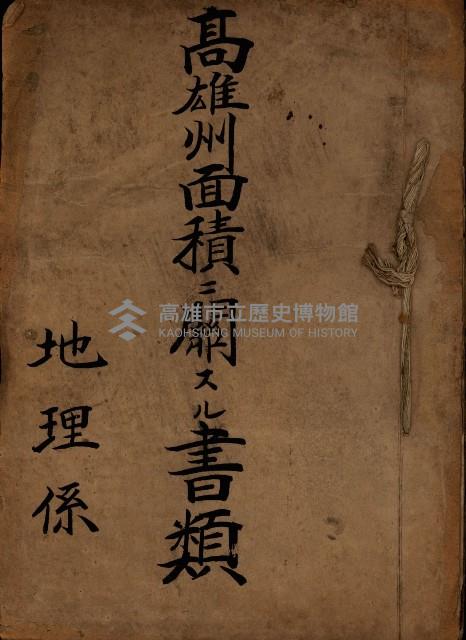 高雄州面積ニ関スル書類
地理係
高雄市立歷史博物館
KAOHSIUNG MUSEUM OF HISTORY